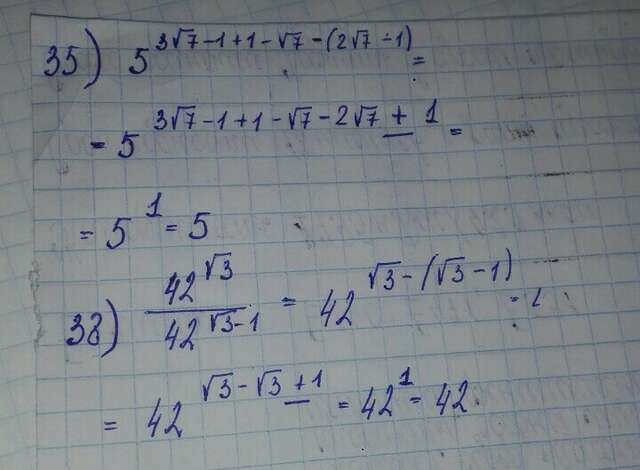 35) 5^{3√7-1+1-√7-(2√7-1)} =
= 5^{3√7-1+1-√7-2√7+1} =
= 5^1 = 5
38) 42^{√3} / 42^{√3-1} = 42^{√3-(√3-1)} =
= 42^{√3-√3+1} = 42^1 = 42